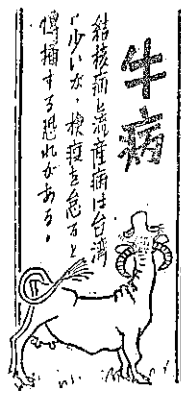 牛病
結核病と流産病は台湾
に少いが、検疫を怠ると
傳播する恐れがある。